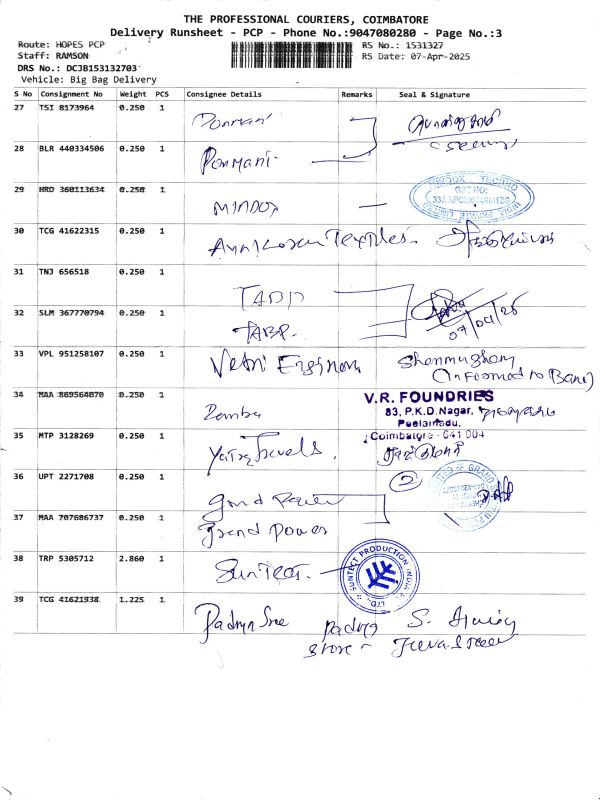 THE PROFESSIONAL COURIERS, COIMBATORE
Delivery Runsheet - PCP - Phone No.:9047080280 - Page No.:3
Route: HOPES PCP
Staff: RAMSON
DRS No.: DCJB153132703
Vehicle: Big Bag Delivery
RS No.: 1531327
RS Date: 07-Apr-2025
S No Consignment No Weight PCS Consignee Details Remarks Seal & Signature
27 TSI 8173964 0.250 1 Ponmani
28 BLR 440334506 0.250 1 Ponmani
29 HRD 360113634 0.250 1 MINDOX
INDOX TECHNO
GST NO:
30 TCG 41622315 0.250 1 Textiles
31 TNJ 656518 0.250 1 TABP
32 SLM 367770794 0.250 1 TABP
07/04/25
33 VPL 951258107 0.250 1 Vetri Shenmugham
(Informed to Bank)
34 MAA 869564070 0.250 1
V.R. FOUNDRIES
83, P.K.D. Nagar,
Peelamedu,
Coimbatore - 641 004
35 MTP 3128269 0.250 1 Yatra Travels
36 UPT 2271708 0.250 1 grand Power
2
37 MAA 707686737 0.250 1 Grand Power
38 TRP 5305712 2.860 1 Suntect
SUNTECT PRODUCTION INDIA P LTD.
39 TCG 41621938 1.225 1 Padmya Sree Padmya S.
Store -